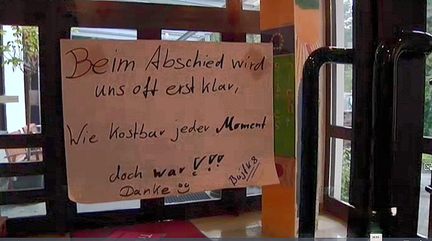 Beim Abschied wird
uns oft erst klar,
Wie kostbar jeder Moment
doch war!!!
Danke